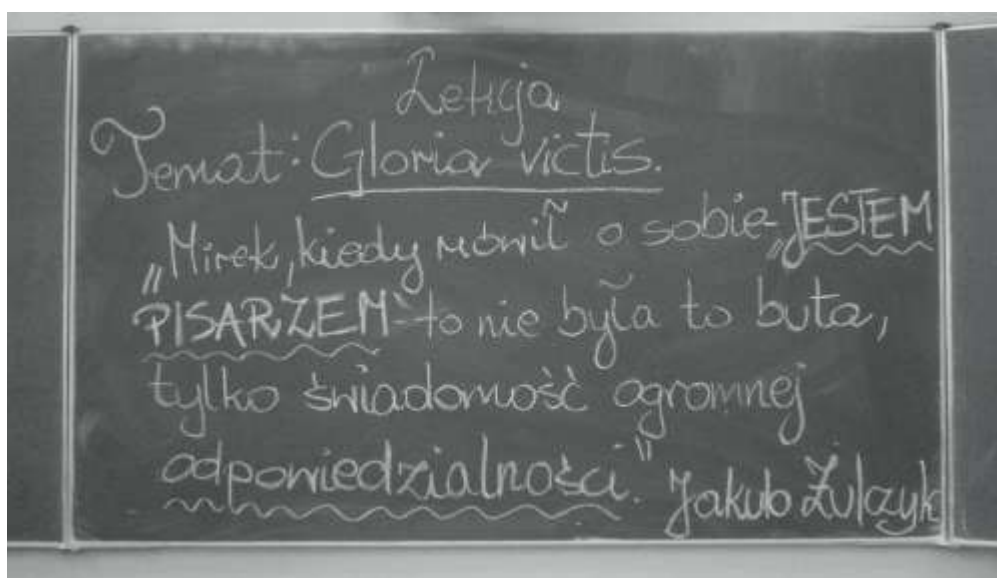 Lekcja
Temat: Gloria victis.
„Mirek, kiedy mówił o sobie-„JESTEM
PISARZEM"-to nie była to buta,
tylko świadomość ogromnej
odpowiedzialności." Jakub Żulczyk